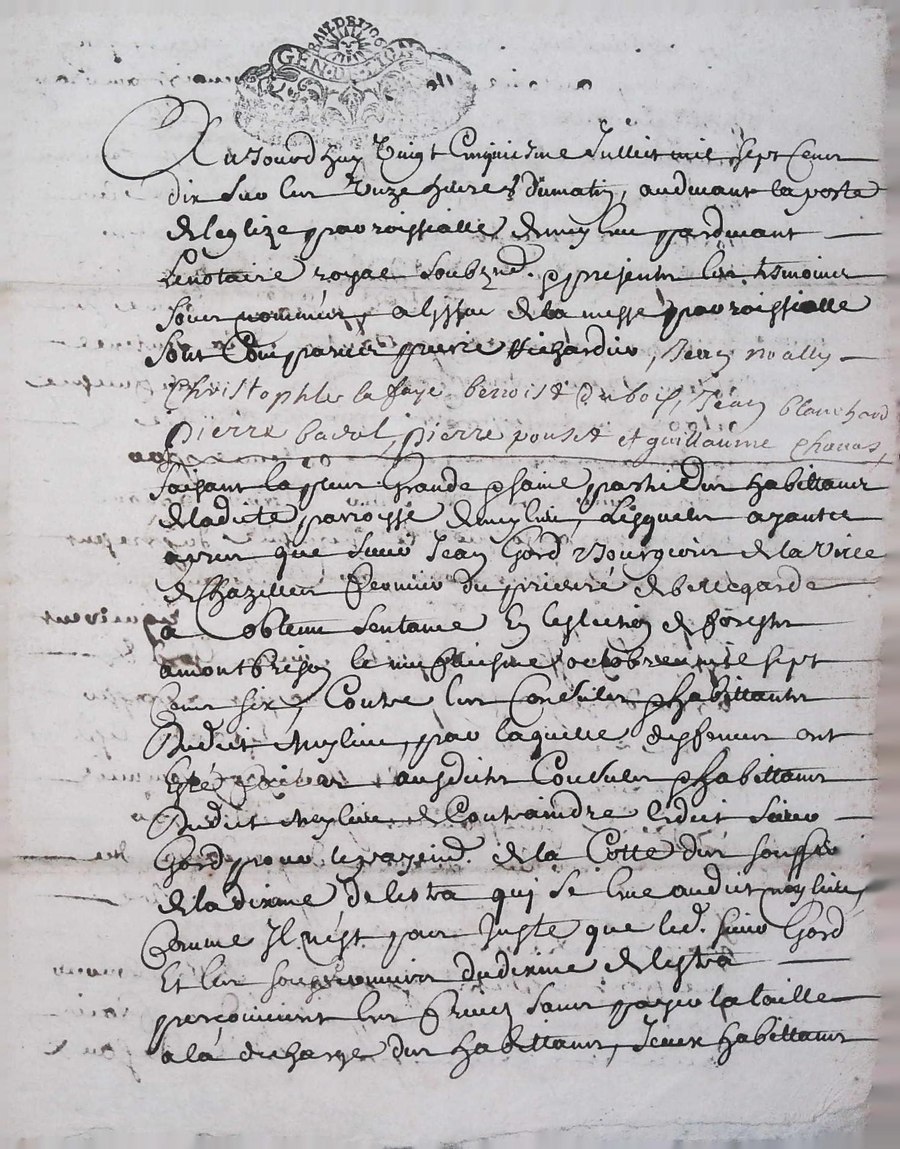 BAIL DE 1706
GEN. DE LION
Aujourdhuy Vingt Cinquiesme Juillet mil sept Cens
dix sur les unze heures du matin, audevant la porte
de leglize parroissialle de meylieu pardevant
Le notaire royal soubzne. & presents les tesmoins
sous nommés, a lissue de la messe parroissialle
sont Comparus pierre Richardier, Jean noally
Christophle la faye benoist duboist, Jean blanchard
pierre badol, pierre pouset et guillaume chavas,
faisant la plus Grande & saine partie des habittans
de ladicte parroisse de meylieu, Lesquels ayants
apris que sieur Jean Gord Bourgeois de la Ville
de Chazelles fermier du prieuré de bellegarde
a obtenu sentance En leslection de forestz
a montbrison le octobre mil sept
Cens six, Contre les Consuls & habittants
dudict Meylieu, par laquelle deffences ont
Esté faictes ausdicts Consuls & habittans
dudict Meylieu de Contraindre Ledict sieur
Gord pour le payemt. de la Cotte des
de la dixme de lestra qui se leve audict meylieu,
Comme Il nest pas Juste que led. sieur Gord
Et les dudixme de lestra
perçoivent les fruicts sans payer la taille
a la descharge des habittans, Iceux habittans